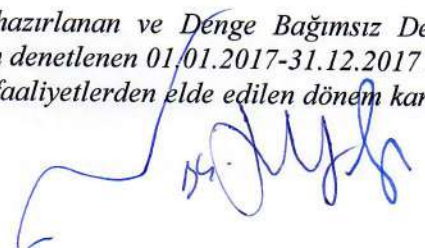 hazırlanan ve Denge Bağımsız De
denetlenen 01.01.2017-31.12.2017
faaliyetlerden elde edilen dönem kar